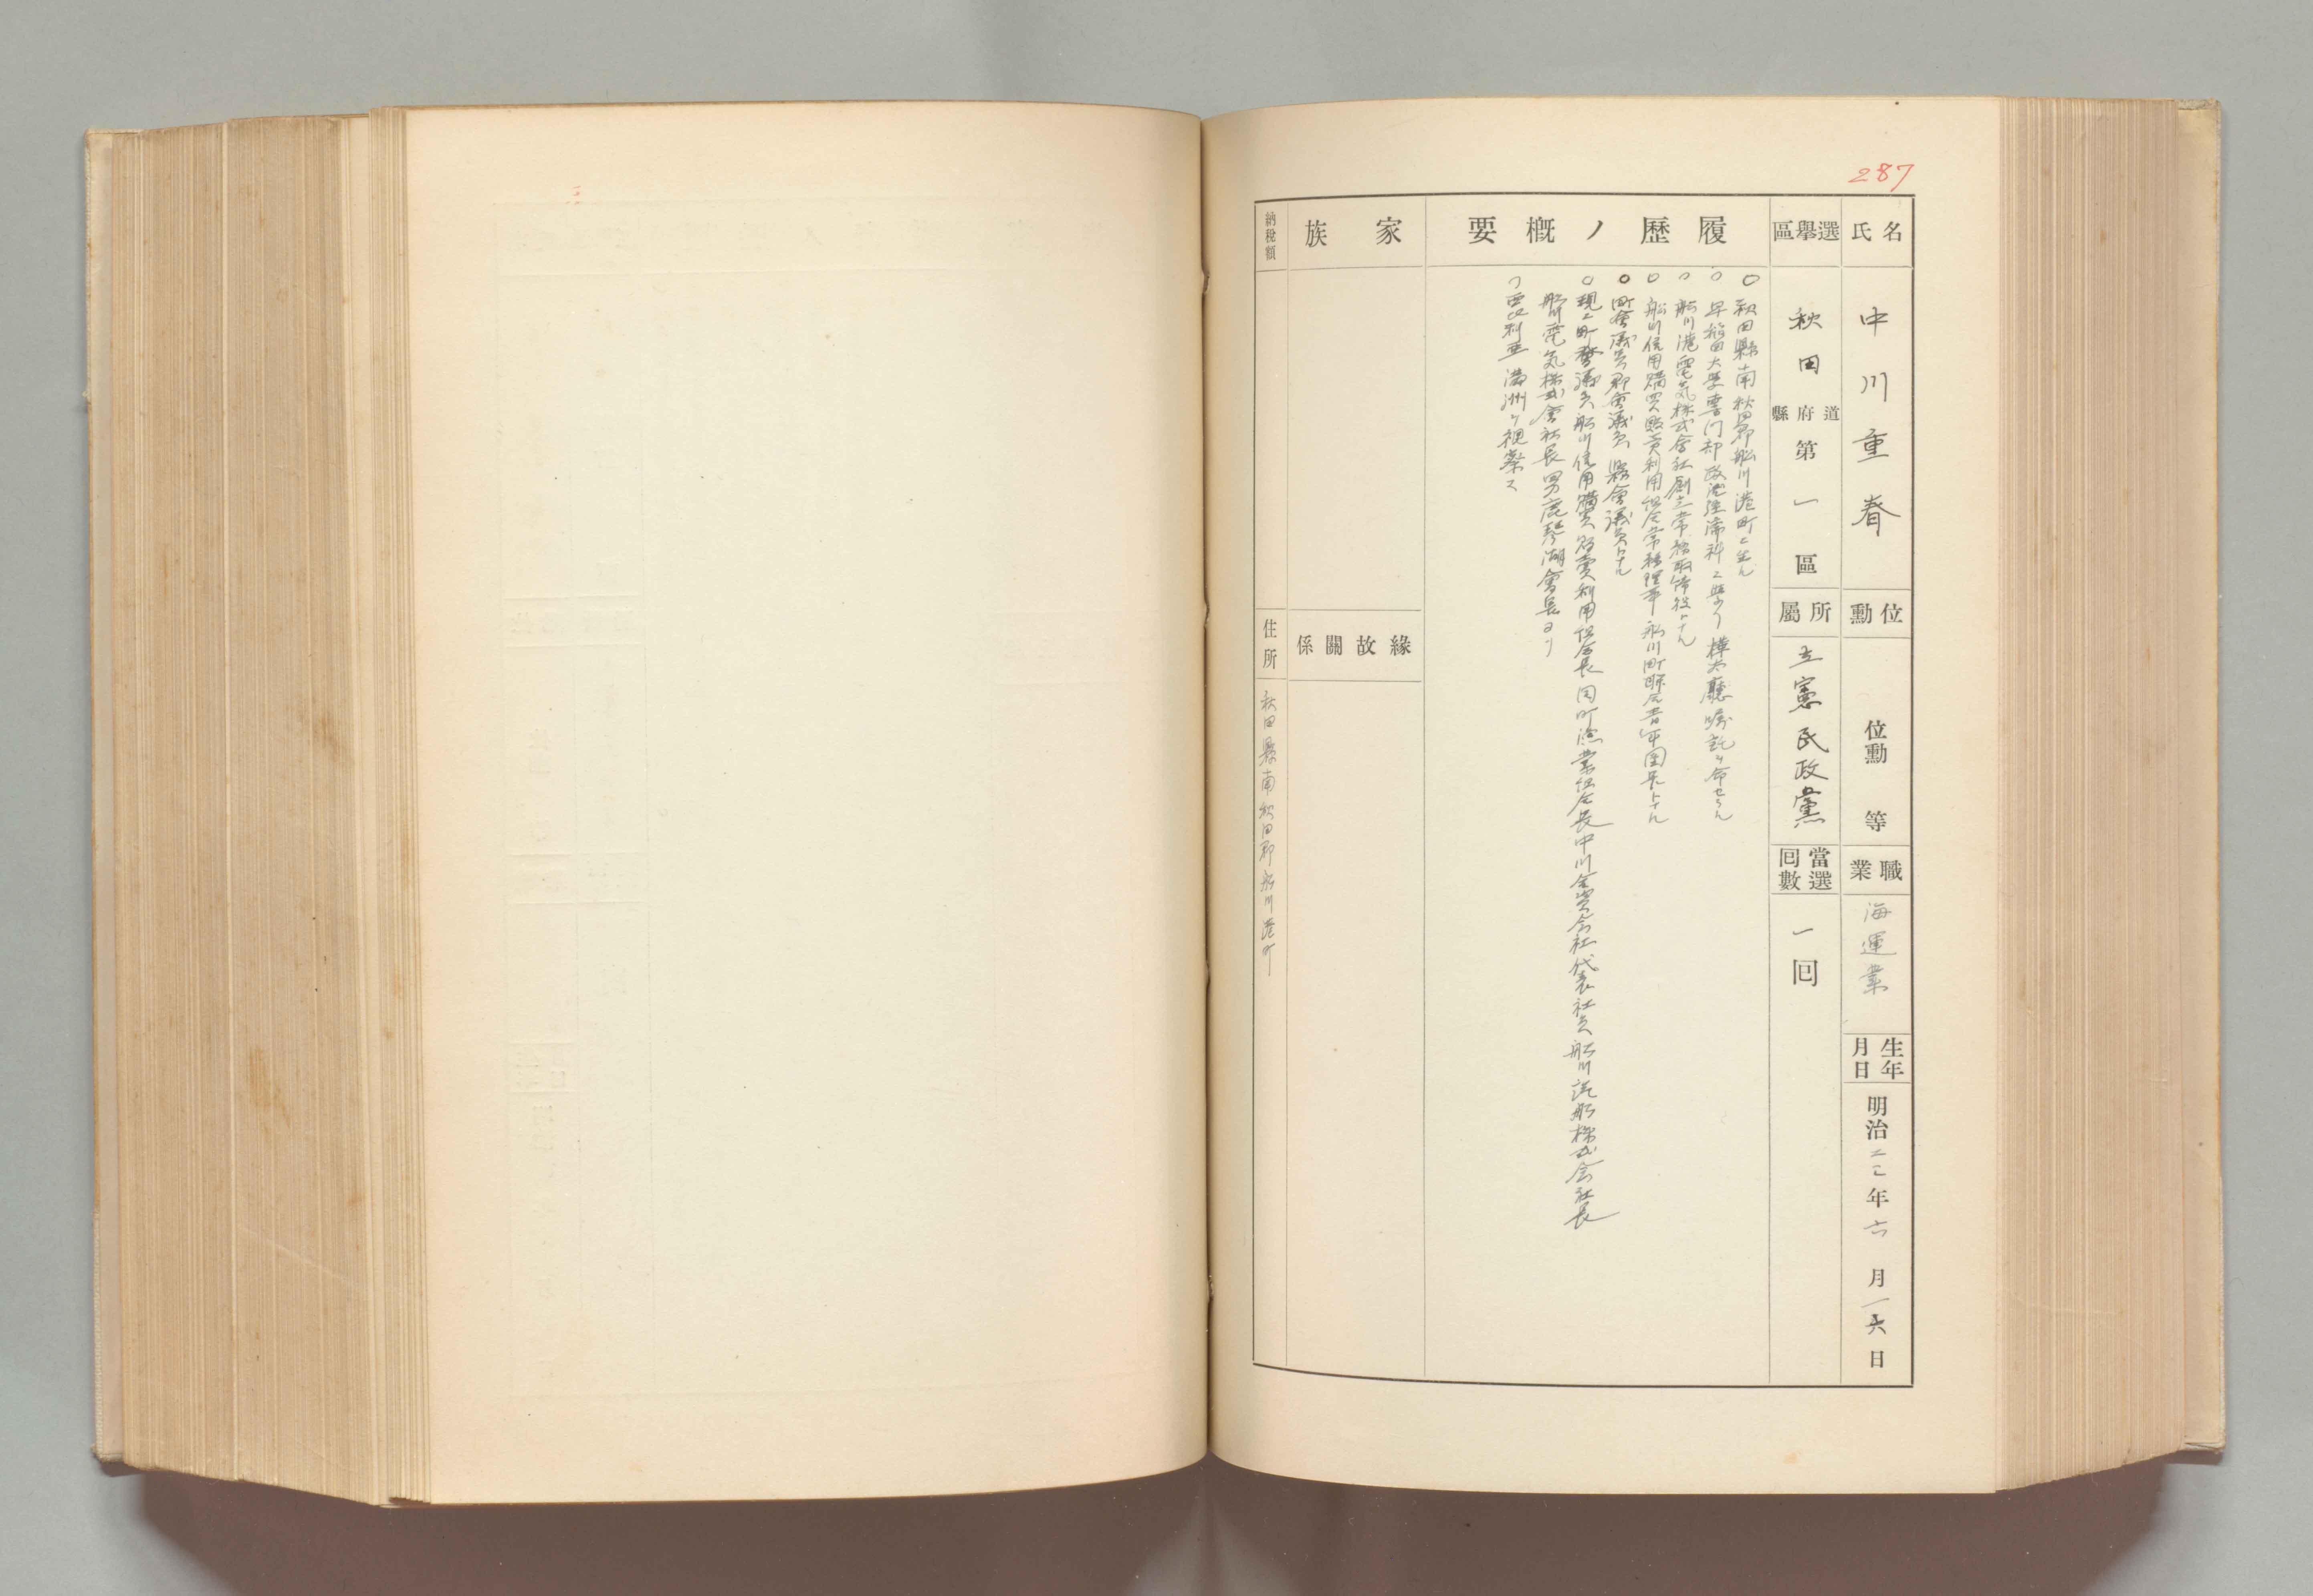 287
氏名
中川重春
位勳
位勳 等
職業
海運業
生年月日
明治二二年六月一六日
選擧區
秋田 道府縣 第一區
所屬
立憲民政黨
當選回數
一回
履歷ノ概要
○秋田縣南秋田郡船川港町ニ生ル
○早稻田大學專門部政治經濟科ニ學ヒ樺太廳囑託ヲ命セラル
○船川港電気株式會社創立常務取締役トナル
○船川信用購買販賣利用組合常務理事 船川町聯合青年團長トナル
○町會議員郡會議員 縣會議員トナル
○現ニ町會議員 船川信用購買販賣利用組合長 同町漁業組合長 中川合資会社代表社員 船川汽船株式会社長
船川電気株式會社長 男鹿琴湖會長タリ
○西比利亜 満洲ヲ視察ス
家族
緣故關係
納稅額
住所
秋田縣南秋田郡船川港町